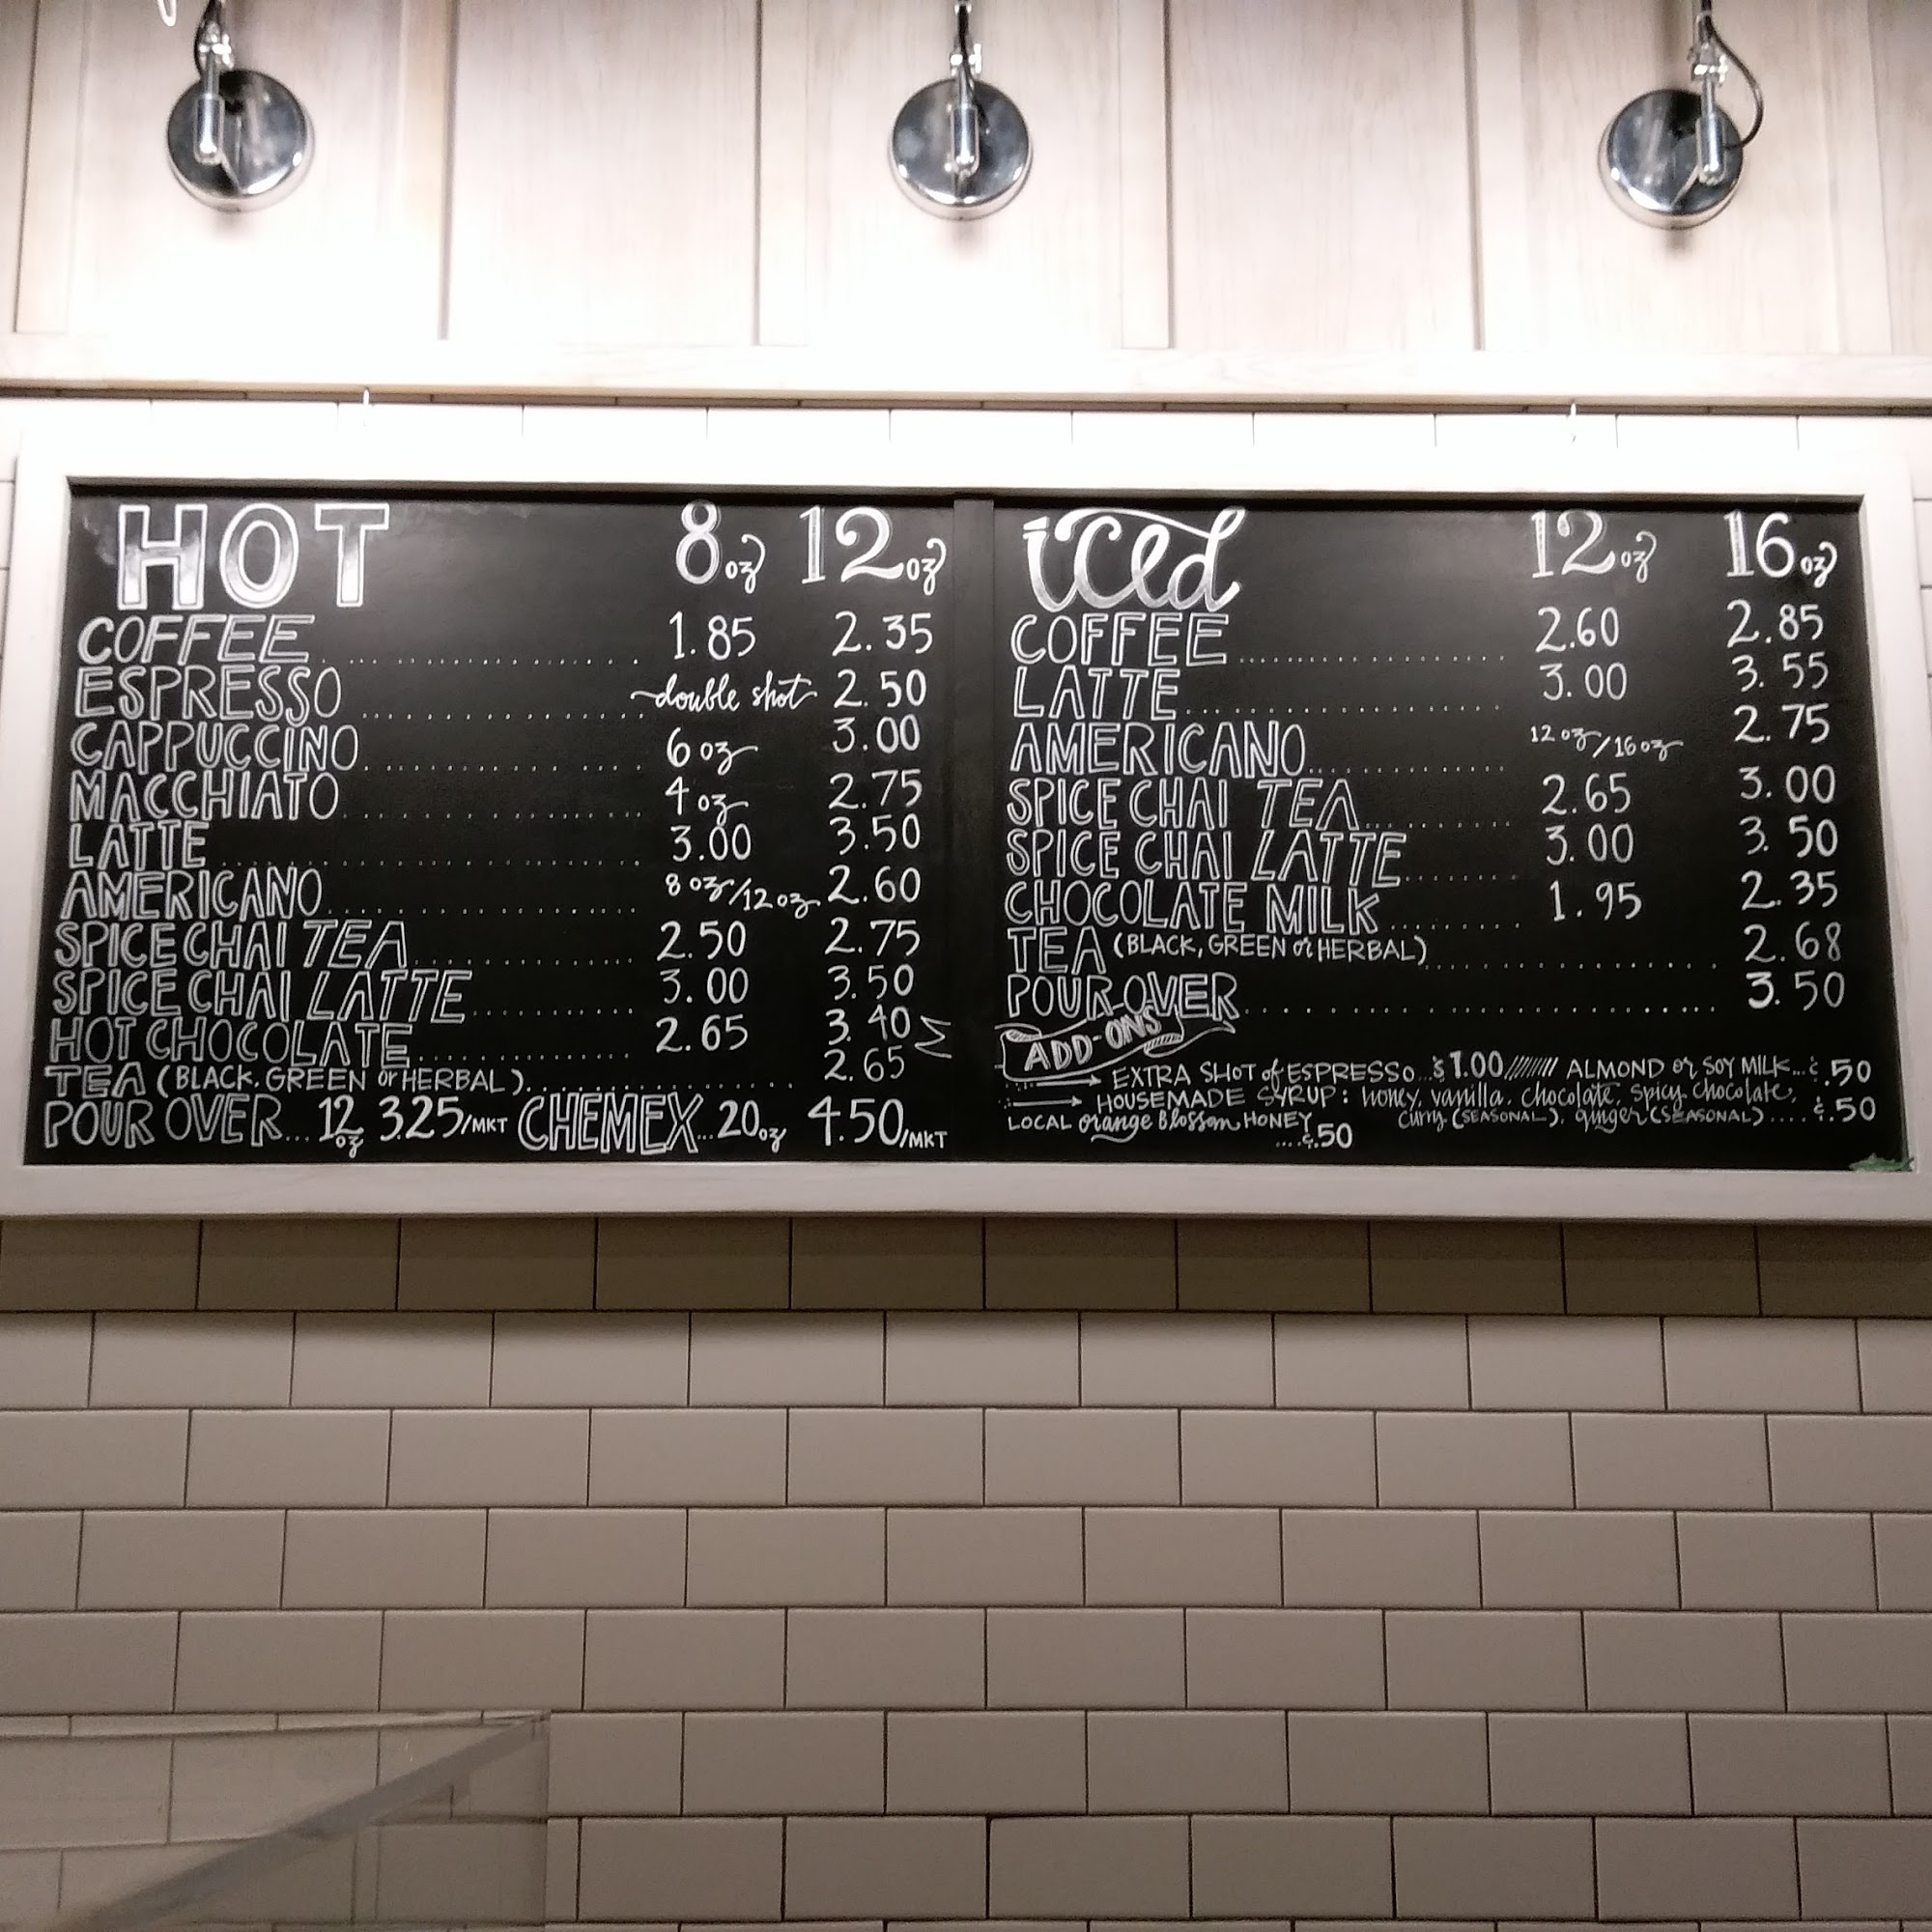 HOT 8oz 12oz
COFFEE 1.85 2.35
ESPRESSO double shot 2.50
CAPPUCCINO 6 oz 3.00
MACCHIATO 4 oz 2.75
LATTE 3.00 3.50
AMERICANO 8 oz/12 oz 2.60
SPICE CHAI TEA 2.50 2.75
SPICE CHAI LATTE 3.00 3.50
HOT CHOCOLATE 2.65 3.40
TEA (BLACK, GREEN or HERBAL) 2.65
POUR OVER... 12 oz 3.25/MKT CHEMEX... 20oz 4.50/MKT
iced 12oz 16oz
COFFEE 2.60 2.85
LATTE 3.00 3.55
AMERICANO 12 oz/16 oz 2.75
SPICE CHAI TEA 2.65 3.00
SPICE CHAI LATTE 3.00 3.50
CHOCOLATE MILK 1.95 2.35
TEA (BLACK, GREEN or HERBAL) 2.68
POUR OVER 3.50
ADD-ONS
EXTRA SHOT of ESPRESSO...$1.00 ///////// ALMOND or SOY MILK...¢.50
HOUSEMADE SYRUP: honey, vanilla, chocolate, spicy chocolate,
curry (SEASONAL), ginger (SEASONAL).... ¢.50
LOCAL orange Blossom HONEY
....¢.50